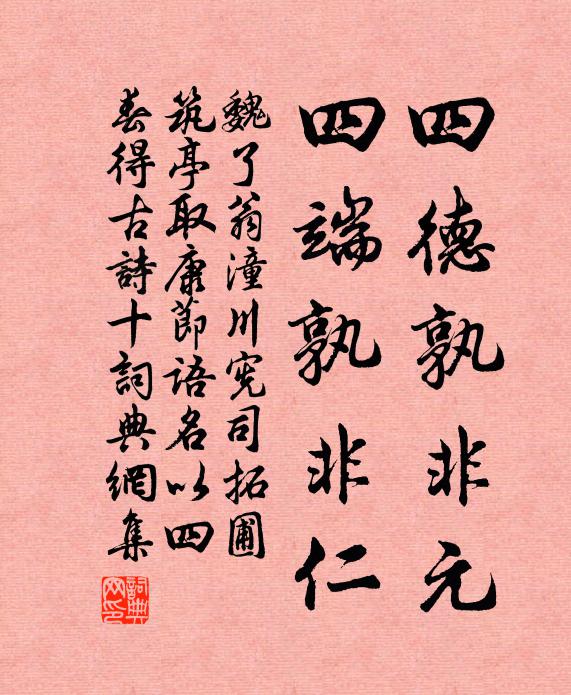 四德孰非元
四端孰非仁
魏了翁潼川宪司拓圃
筑亭取康節语名以四
春得古詩十詞典網集
詞典网印